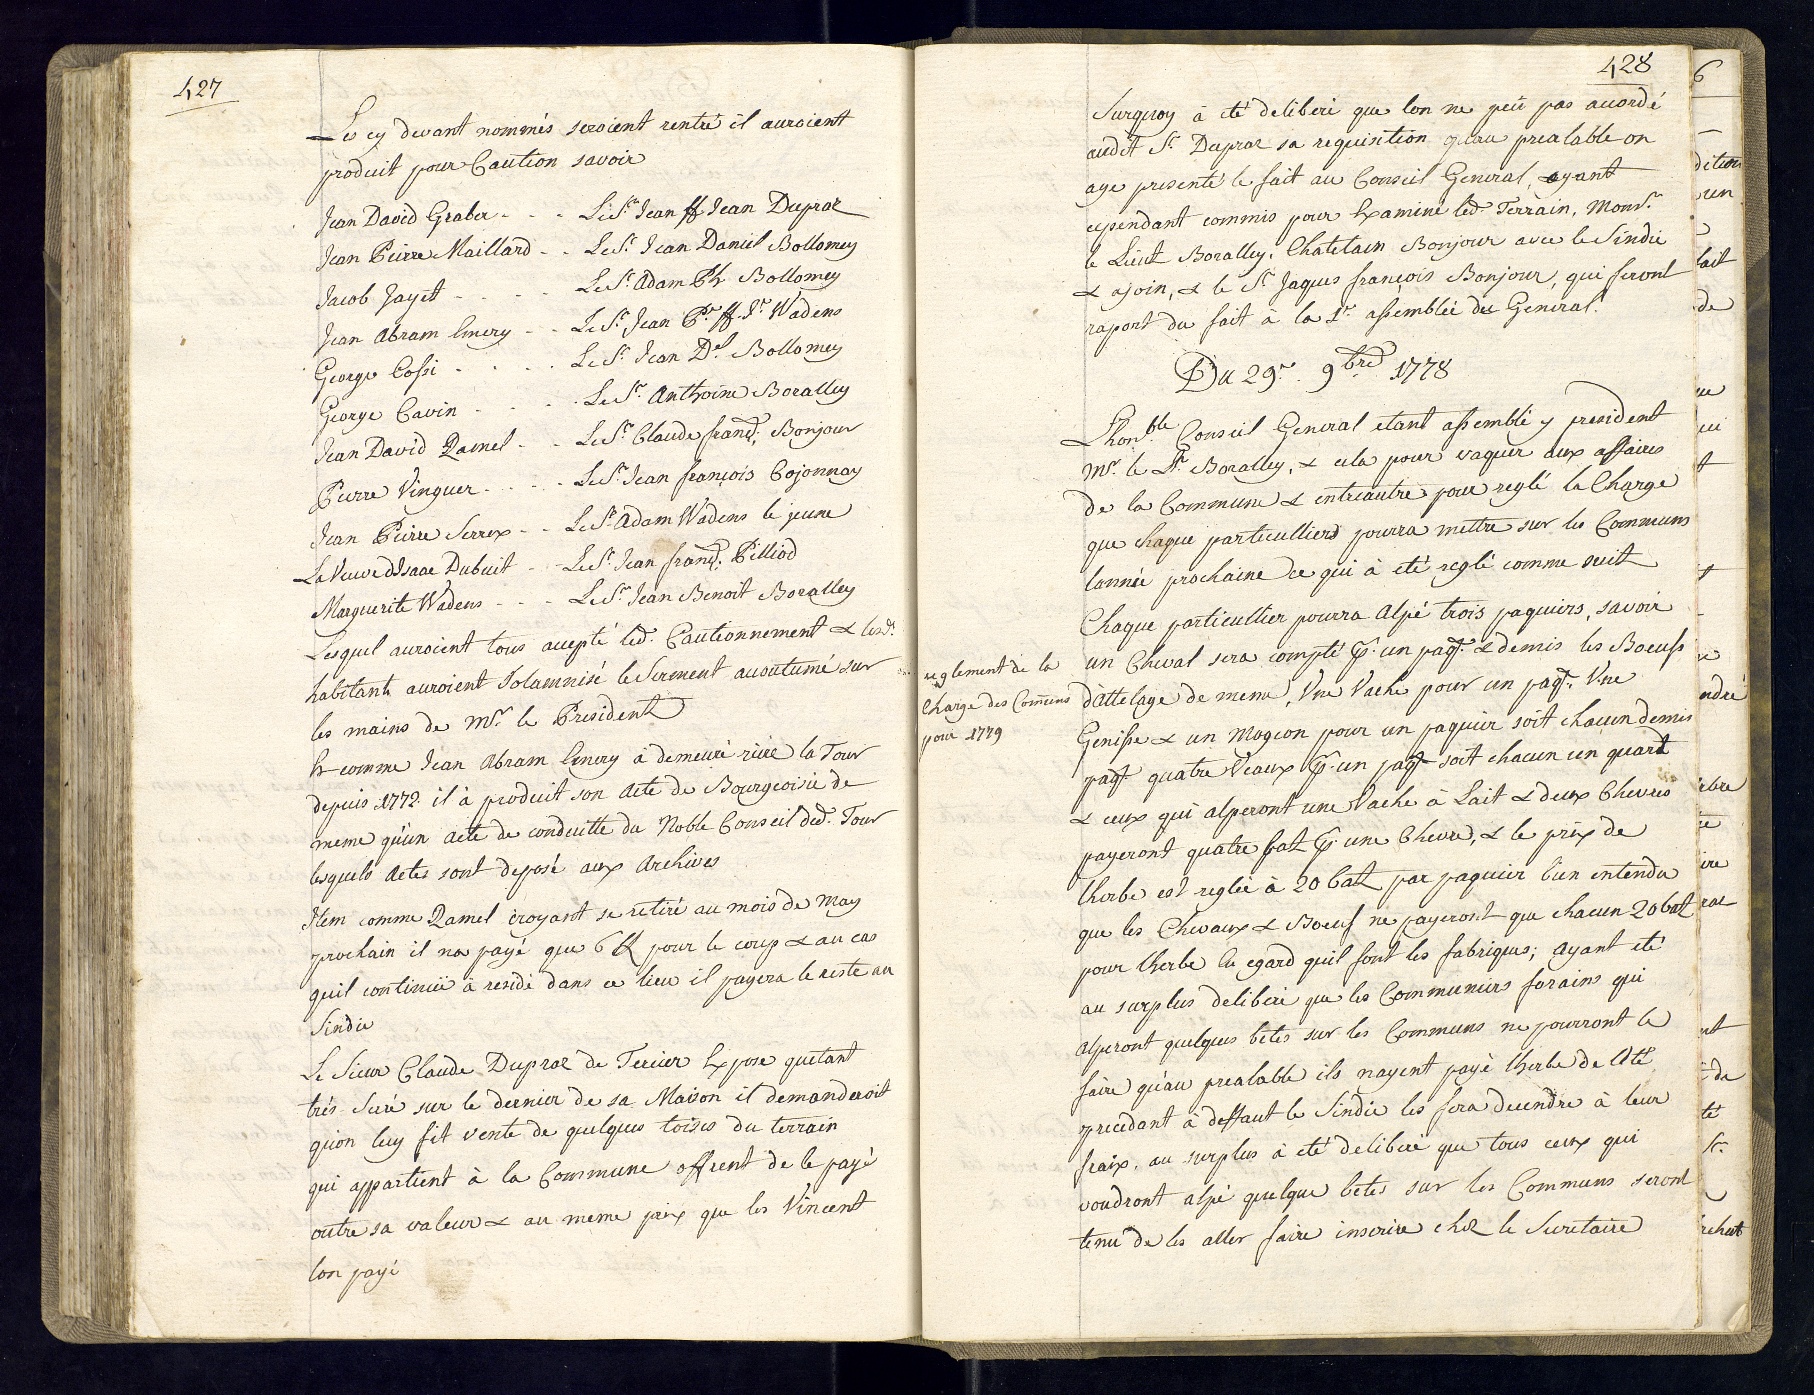 427
Les cy devant nommés seroient rentré il auroient
produit pour Caution savoir
Jean David Graber - - - Le Sr. Jean ff Jean Dupraz
Jean Pierre Maillard - - Le Sr. Jean Daniel Bollomey
Jacob Jayet - - - - Le Sr. Adam Ph. Bollomey
Jean Abram Emery - - Le Sr. Jean Pre ff. Pre Wadens
George Cossi - - - - Le Sr. Jean Dl. Bollomey
George Cavin - - - - Le Sr. Anthoine Boralley
Jean David Ramel - - Le Sr. Claude franç: Bonjour
Pierre Vinguer - - - - Le Sr. Jean françois Cojonnay
Jean Pierre Serex - - Le Sr. Adam Wadens le jeune
La Veuve d'Isaac Dubuit - - Le Sr. Jean franç: Pilliod
Marguerite Wadens - - - Le Sr. Jean Benoit Boralley
Lesquel auroient tous accepté led. Cautionnement & lesd.
habitants auroient Solamnisé le Serment accoutumé sur
les mains de Mr. le President
Et comme Jean Abram Emery à demeuré rière la Tour
depuis 1772. il à produit son Acte de Bourgeoisie de
meme qu'un Acte de conduitte du Noble Conseil dud. Tour
lesquels Actes sont deposé aux Archives
Item comme Ramel croyant se retiré au mois de May
prochain il na payé que 6 ff pour le coup & au cas
quil continüe à residé dans ce lieu il payera le reste au
Sindic
Le Sieur Claude Dupraz de Tercier Expose quetant
trés Seré sur le dernier de sa Maison il demanderoit
qu'on luy fit vente de quelques toises du terrain
qui appartient à la Commune offrent de le payé
outre sa valeur & au meme prix que les Vincent
lon payé
428
Surquoy à été deliberé que lon ne peut pas accordé
audit Sr. Dupraz sa requisition quau prealable on
aye presenté le fait au Conseil General, ayant
cependant commis pour Examiné led. Terrain, Monsr.
le Lieut Boralley, Chatelain Bonjour avec le Sindic
& ajoin, & le Sr. Jaques françois Bonjour, qui feront
raport du fait à la 1re. assemblée du General.
Du 29e. 9bre 1778
L'honble Conseil General etant assemblé y president
Mr. le Lt. Boralley, & cela pour vaquer aux affaires
de la Commune & entreautre pour reglé la Charge
que chaque particulliers pourra mettre sur les Communs
lannée prochaine ce qui à été reglé comme suit
Chaque particullier pourra Alpé trois paquiers, savoir
reglement de la
Charge des Comuns
pour 1779
un Cheval sera compté pr. un paqr. & demis les Boeufs
d'Attelage de meme, Une Vache pour un paqr. Une
Genisse & un Mogeon pour un paquier soit chacun demis
paqr quatre Veaux pr. un paqr soit chacun un quart
& ceux qui alperont une Vache à Lait & deux Chevres
payeront quatre batz pr. une Chevre, & le prix de
lherbe est reglée à 20 batz par paquier bien entendu
que les Chevaux & Boeuf ne payeront que chacun 20 batz
pour lherbe En egard quil font les fabriques; Ayant eté
au surplus deliberé que les Communiers forains qui
alperont quelques betes sur les Communs ne pourront le
faire qu'au prealable ils nayent payé lherbe de l'Eté
precedant à deffaut le Sindic les fera decendre à leur
fraix, au surplus à eté deliberé que tous ceux qui
voudront alpé quelque betes sur les Communs seront
tenu de les aller faire inscrire chez le Secretaire